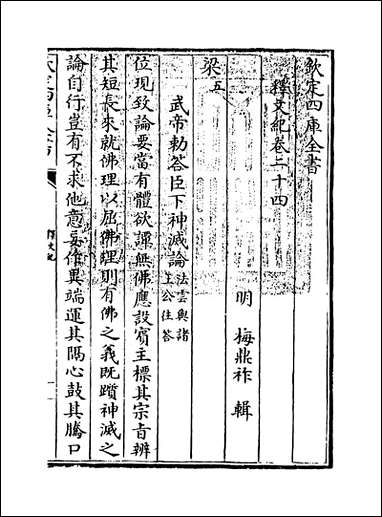 欽定四庫全書
釋文紀卷二十四
明 梅鼎祚 輯
梁五
武帝勅答臣下神滅論 法雲與諸王公往答
位現致論要當有體欲譚無佛應設賓主標其宗旨辨
其短長來就佛理以屈佛理則有佛之義既躓神滅之
論自行豈有不求他意妄作異端運其隅心鼓其騰口